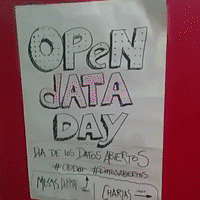 OPEN
DATA
DAY
DIA DE LOS DATOS ABIERTOS
#DATOSABIERTOS
MESAS
CHARLAS